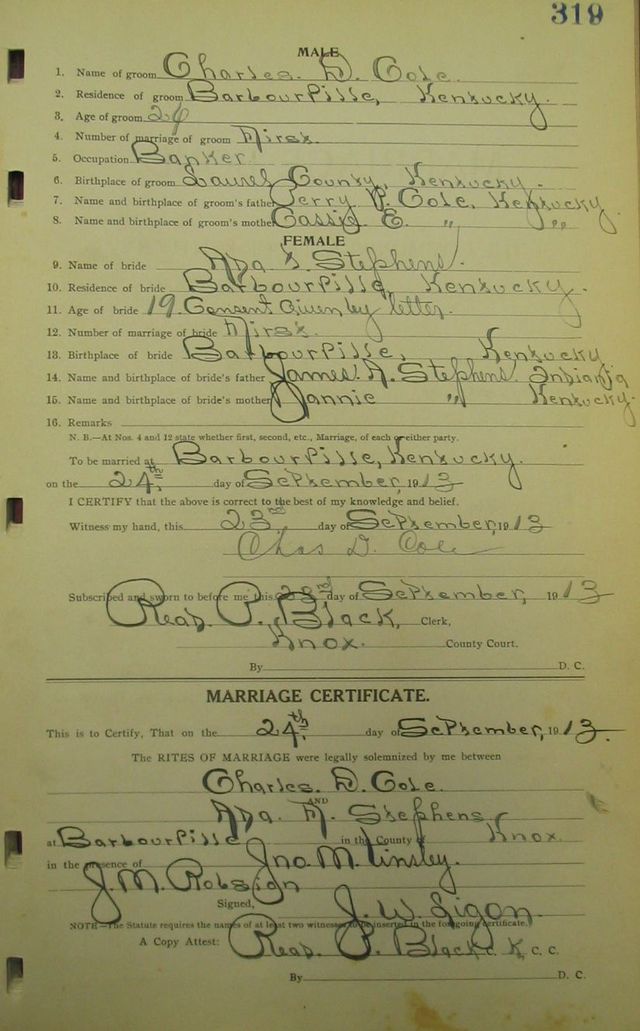 319
MALE
1. Name of groom Charles. D. Cole.
2. Residence of groom Barbourville, Kentucky.
3. Age of groom 24
4. Number of marriage of groom First.
5. Occupation Banker
6. Birthplace of groom Laurel County, Kentucky.
7. Name and birthplace of groom's father Cole, Kentucky.
8. Name and birthplace of groom's mother Cassie E. " "
FEMALE
9. Name of bride Stephens.
10. Residence of bride Barbourville, Kentucky.
11. Age of bride 19 Consent Given by letter.
12. Number of marriage of bride First.
13. Birthplace of bride Barbourville, Kentucky.
14. Name and birthplace of bride's father James. Stephens. Indiana
15. Name and birthplace of bride's mother " Kentucky.
16. Remarks
N. B.—At Nos. 4 and 12 state whether first, second, etc., Marriage, of each or either party.
To be married at Barbourville, Kentucky.
on the 24.th day of September, 1913
I CERTIFY that the above is correct to the best of my knowledge and belief.
Witness my hand, this 23rd day of September, 1913
Chas D. Cole
Subscribed and sworn to before me this 23rd day of September, 1913
Read. P. Black, Clerk,
Knox. County Court.
By D. C.
MARRIAGE CERTIFICATE.
This is to Certify, That on the 24.th day of September, 1913.
The RITES OF MARRIAGE were legally solemnized by me between
Charles. D. Cole.
AND
Stephens
at Barbourville in the County of Knox.
in the presence of Jno. M. Tinsley.
J. M. Robsion
Signed, J. W. Ligon.
NOTE—The Statute requires the names of at least two witnesses to be inserted in the foregoing certificate.
A Copy Attest: Read. P. Black C. K. C. C.
By D. C.